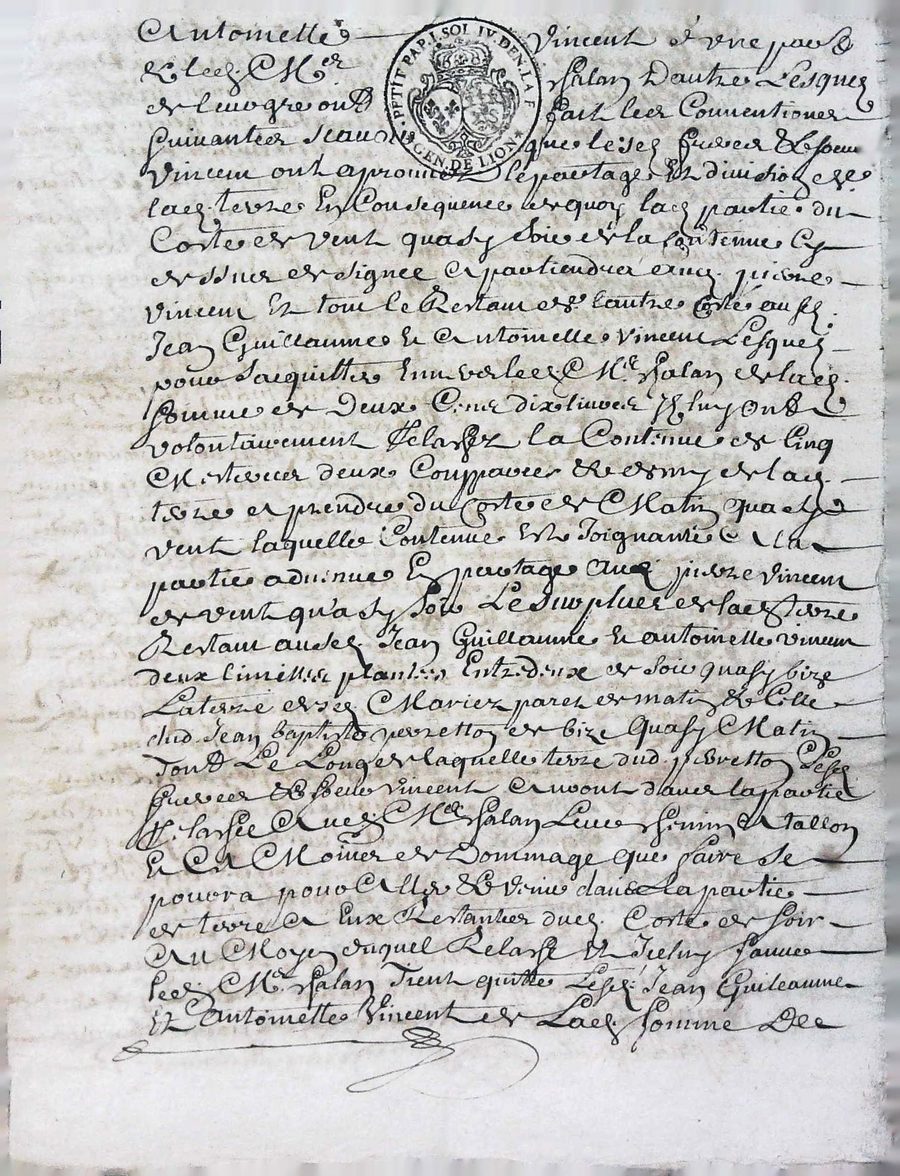 Antoinette Vincent d'une part
& led. Mr. Salan d'autre Lesquels
de leur gre ont fait les Conventions
Suivantes scavoir que lesd. freres & soeur
PETIT PAP. 1. SOL IV. DEN. LA F. GEN. DE LION
Vincent ont apromis le partage Et division de
lad. terre En Consequence de quoy lad. partie du
Coste de vent quasy soir de la Contenue Cy
dessus designée apartiendra aud. pierre
vincent Et tout le Restant de l'autre Costé ausd.
Jean Guillaume & Antoinette Vincent Lesquels
pour s'acquitter Envers led. Mr. Salan de lad.
somme de Deux Cens dix livres luy ont
volontairement Relasché la Contenue de Cinq
Mesterées deux Coupparées & demy de lad.
terre a prendre du Costé de Matin quasy
vent laquelle Contenue Est Joignante A la
partie advenue En partage aud. pierre Vincent
de vent quasy soir Le surplus de lad. terre
Restant ausd. Jean Guillaume & antoinette vincent
deux limittes plantées Entredeux de soir quasy bize
La terre de matin & Celle
dud. Jean baptiste perretton de bize quasy Matin
Tout Le Long de laquelle terre dud. perretton Lesd.
freres & soeur Vincent Auront dans la partie
Relaschée Aud. Mr. Salan Leur chemin A tallon
& Au Moins de Dommage que faire se
pourra pour Aller & venir dans La partie
de terre A Eux Restante dud. Costé de soir
Au Moyen duquel Relasché Et Jceluy
led. Mr. Salan Tient quitte Lesd. Jean Guileaume
Et Antoinette Vincent de Lad. Somme De